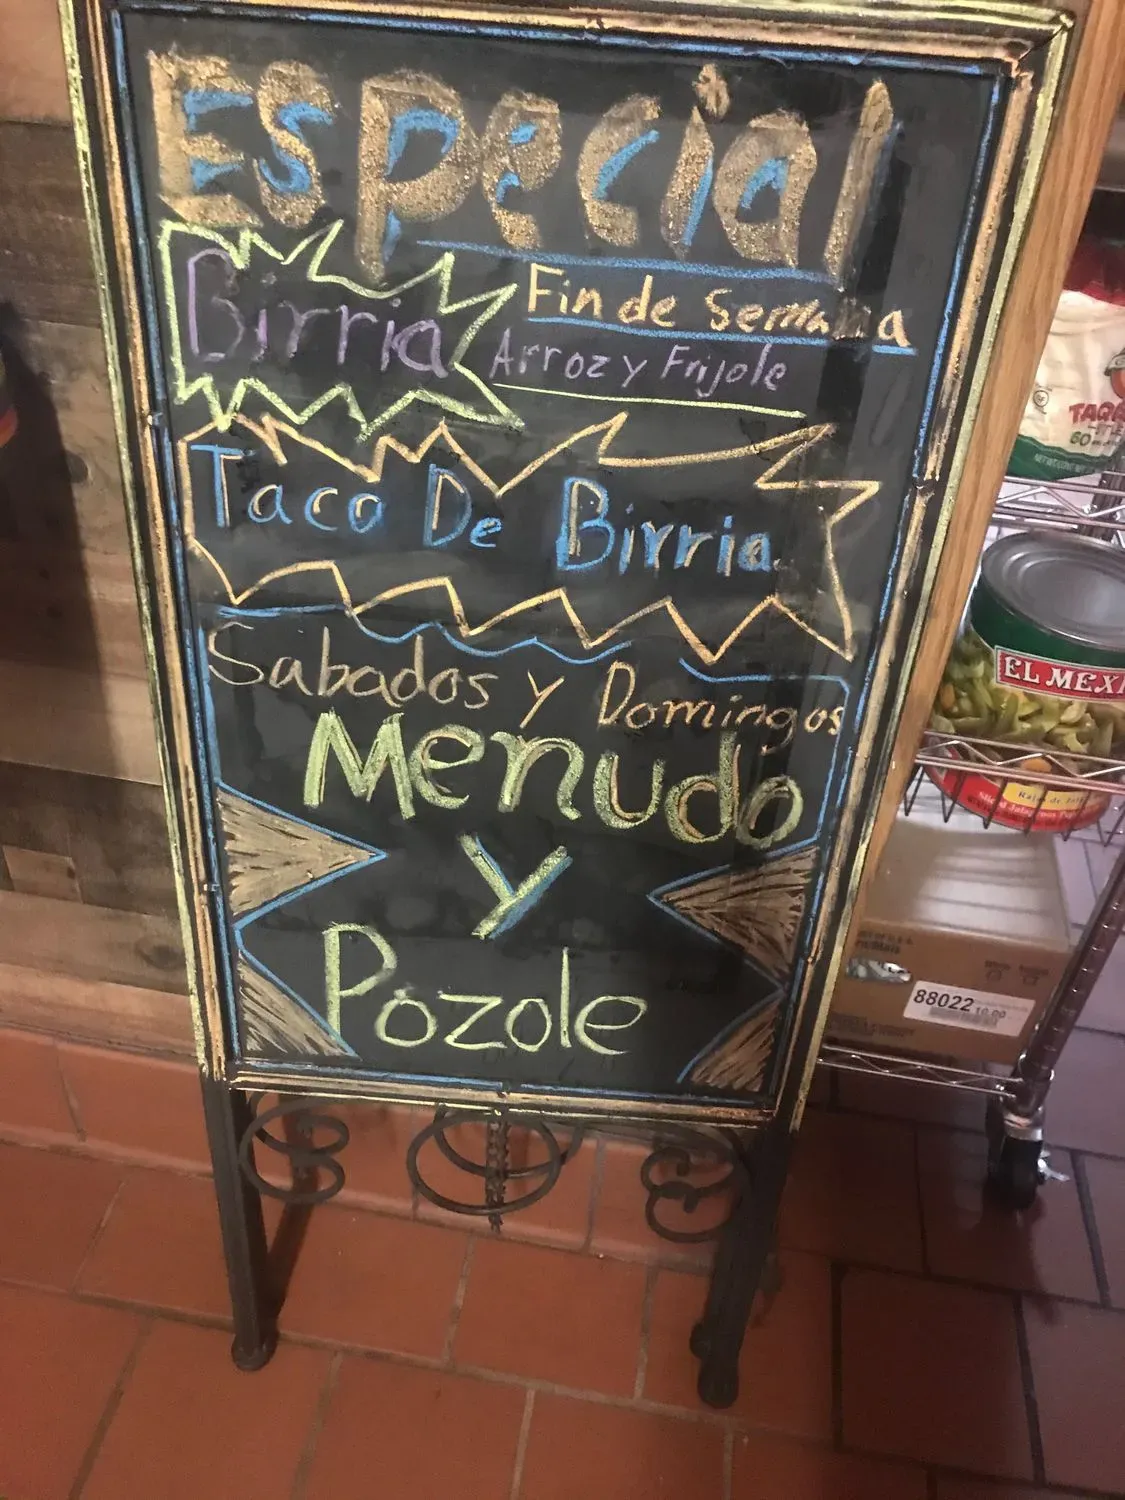 Especial
Fin de Semana
Birria
Arroz y Frijole
Taco De Birria
Sabados y Domingos
Menudo
Y
Pozole
60
EL MEXI
88022